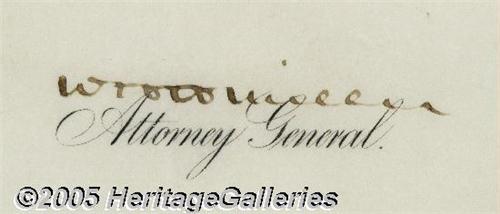 Attorney General.
©2005 HeritageGalleries